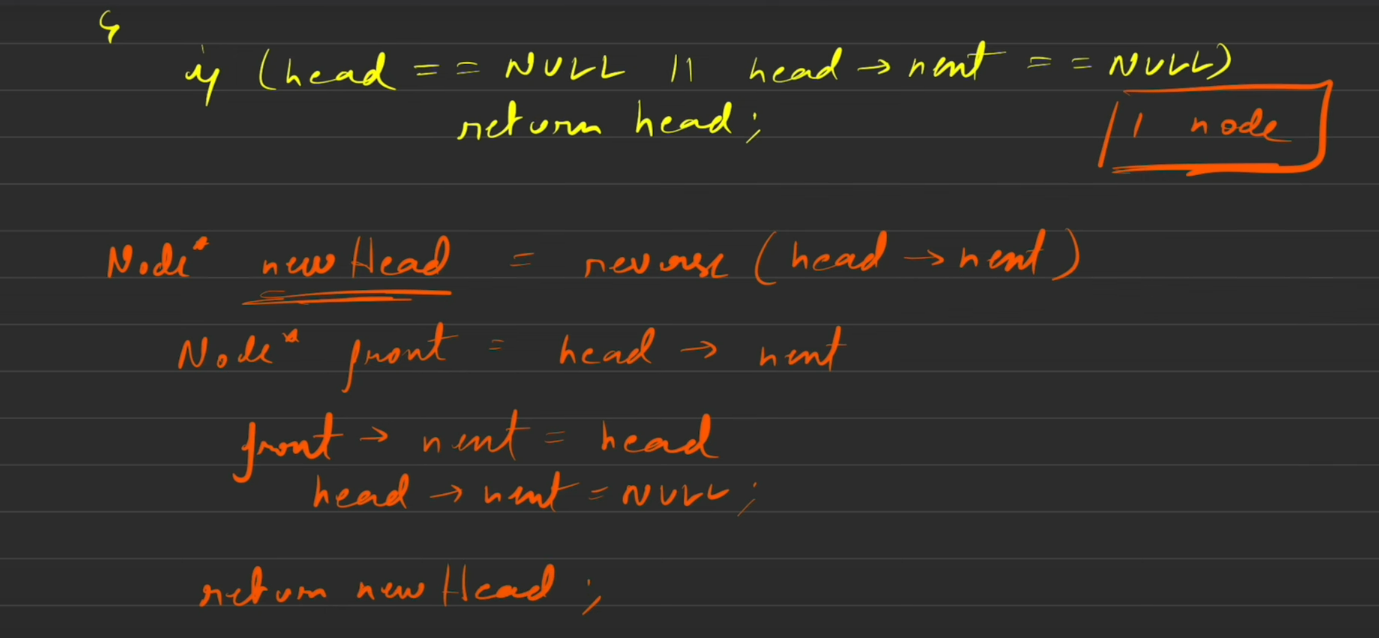 {
if (head == NULL || head → next == NULL)
return head;
// node
Node* newHead = reverse (head → next)
Node* front = head → next
front → next = head
head → next = NULL;
return newHead;